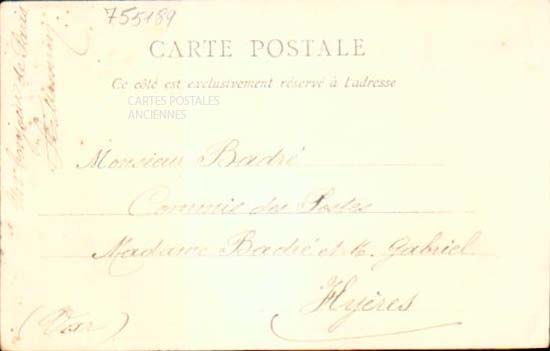 755189
CARTE POSTALE
Ce côté est exclusivement réservé à l'adresse
CARTES POSTALES
ANCIENNES
Monsieur Badré
Commis des Postes
Madame Badré et M. Gabriel
Hyères
(Var)
de Paris